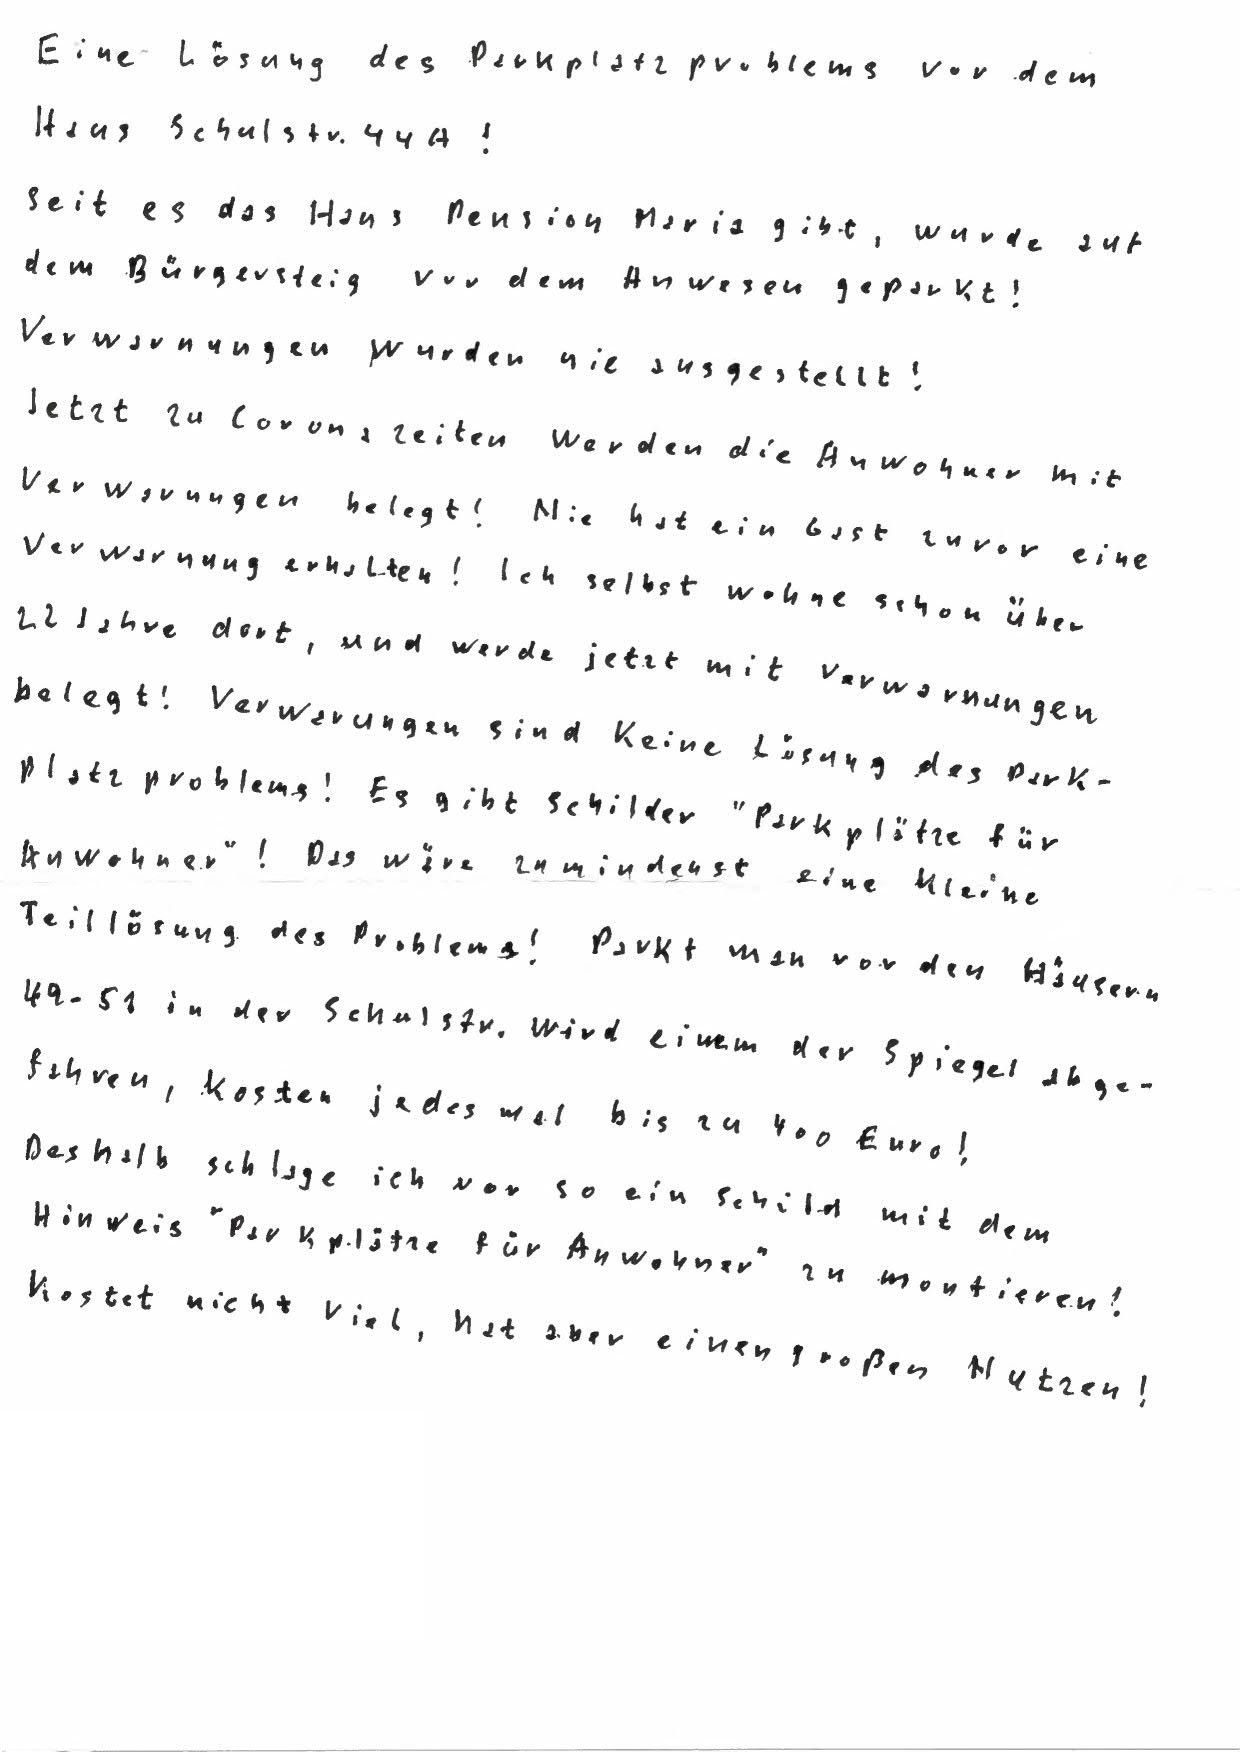 Eine Lösung des Parkplatzproblems vor dem
Haus Schulstr. 44A!
Seit es das Haus Pension Maria gibt, wurde auf
dem Bürgersteig vor dem Anwesen geparkt!
Verwarnungen wurden nie ausgestellt!
Jetzt zu Coronazeiten werden die Anwohner mit
Verwarnungen belegt! Nie hat ein Gast zuvor eine
Verwarnung erhalten! Ich selbst wohne schon über
22 Jahre dort, und werde jetzt mit Verwarnungen
belegt! Verwarungen sind keine Lösung des Park-
platzproblems! Es gibt Schilder "Parkplätze für
Anwohner"! Das wäre zumindenst eine kleine
Teillösung des Problems! Parkt man vor den Häusern
49-51 in der Schulstr. wird einem der Spiegel abge-
fahren, kosten jedesmal bis zu 400 Euro!
Deshalb schlage ich vor so ein Schild mit dem
Hinweis "Parkplätze für Anwohner" zu montieren!
Kostet nicht viel, hat aber einen großen Nutzen!